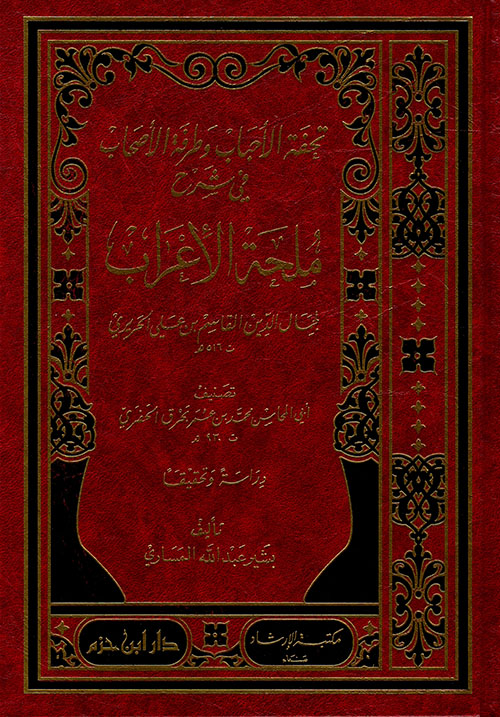 تحفة الأحباب وطرفة الأصحاب
في شرح
ملحة الأعراب
لجمال الدين القاسم بن علي الحريري
ت ٥١٦ هـ
تصنيف
أبي المحاسن محمد بن عمر بحرق الحضرمي
ت ٩٣٠ هـ
دراسة وتحقيقا
تأليف
بشير عبد الله المساري
مكتبة الإرشاد
صنعاء
دار ابن حزم